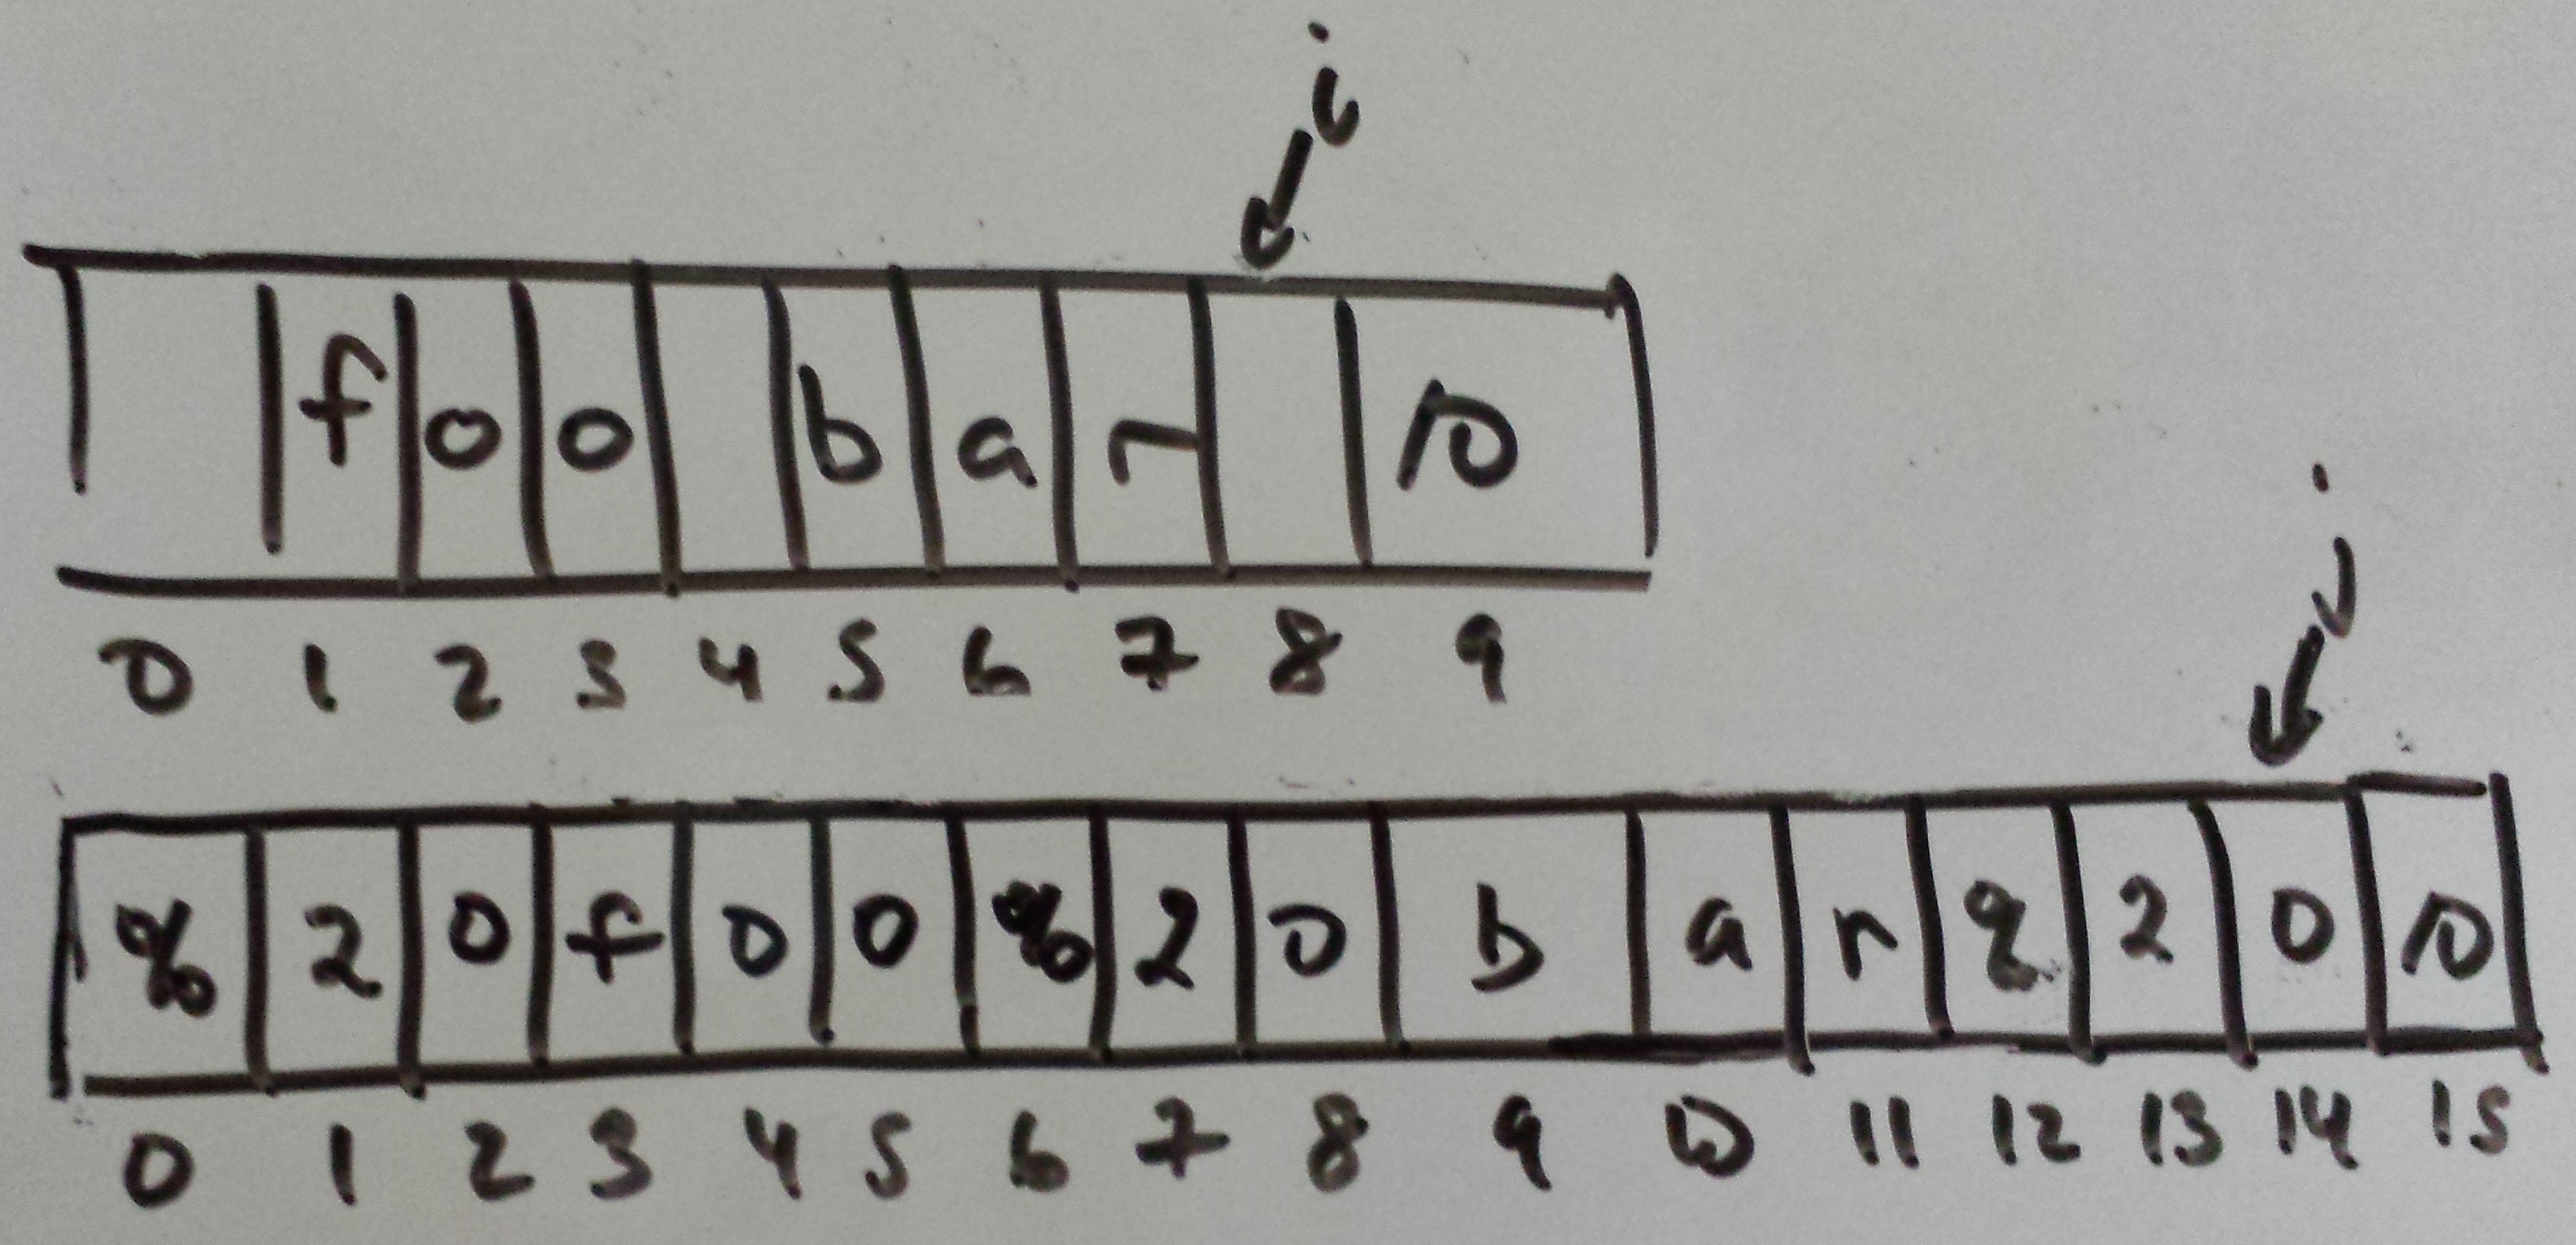 i
f o o b a r \0
0 1 2 3 4 5 6 7 8 9
j
% 2 0 f o o % 2 0 b a r % 2 0 \0
0 1 2 3 4 5 6 7 8 9 10 11 12 13 14 15